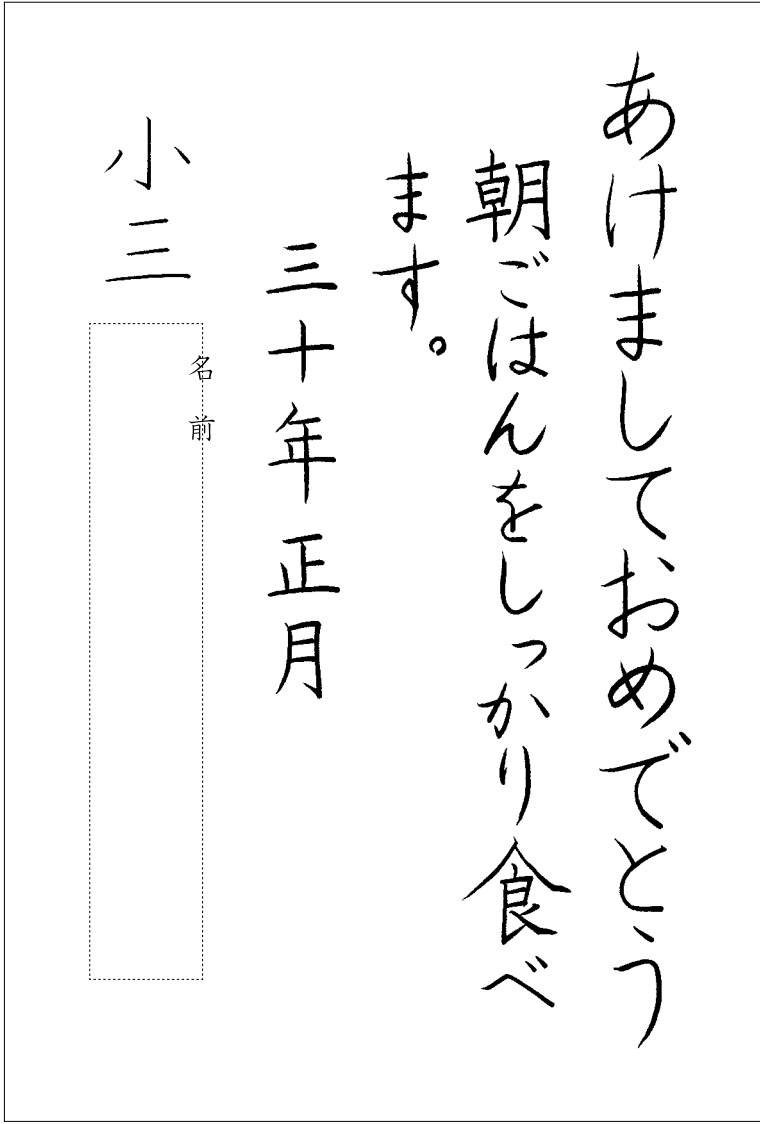 あけましておめでとう
朝ごはんをしっかり食べ
ます。
三十年正月
小三
名前